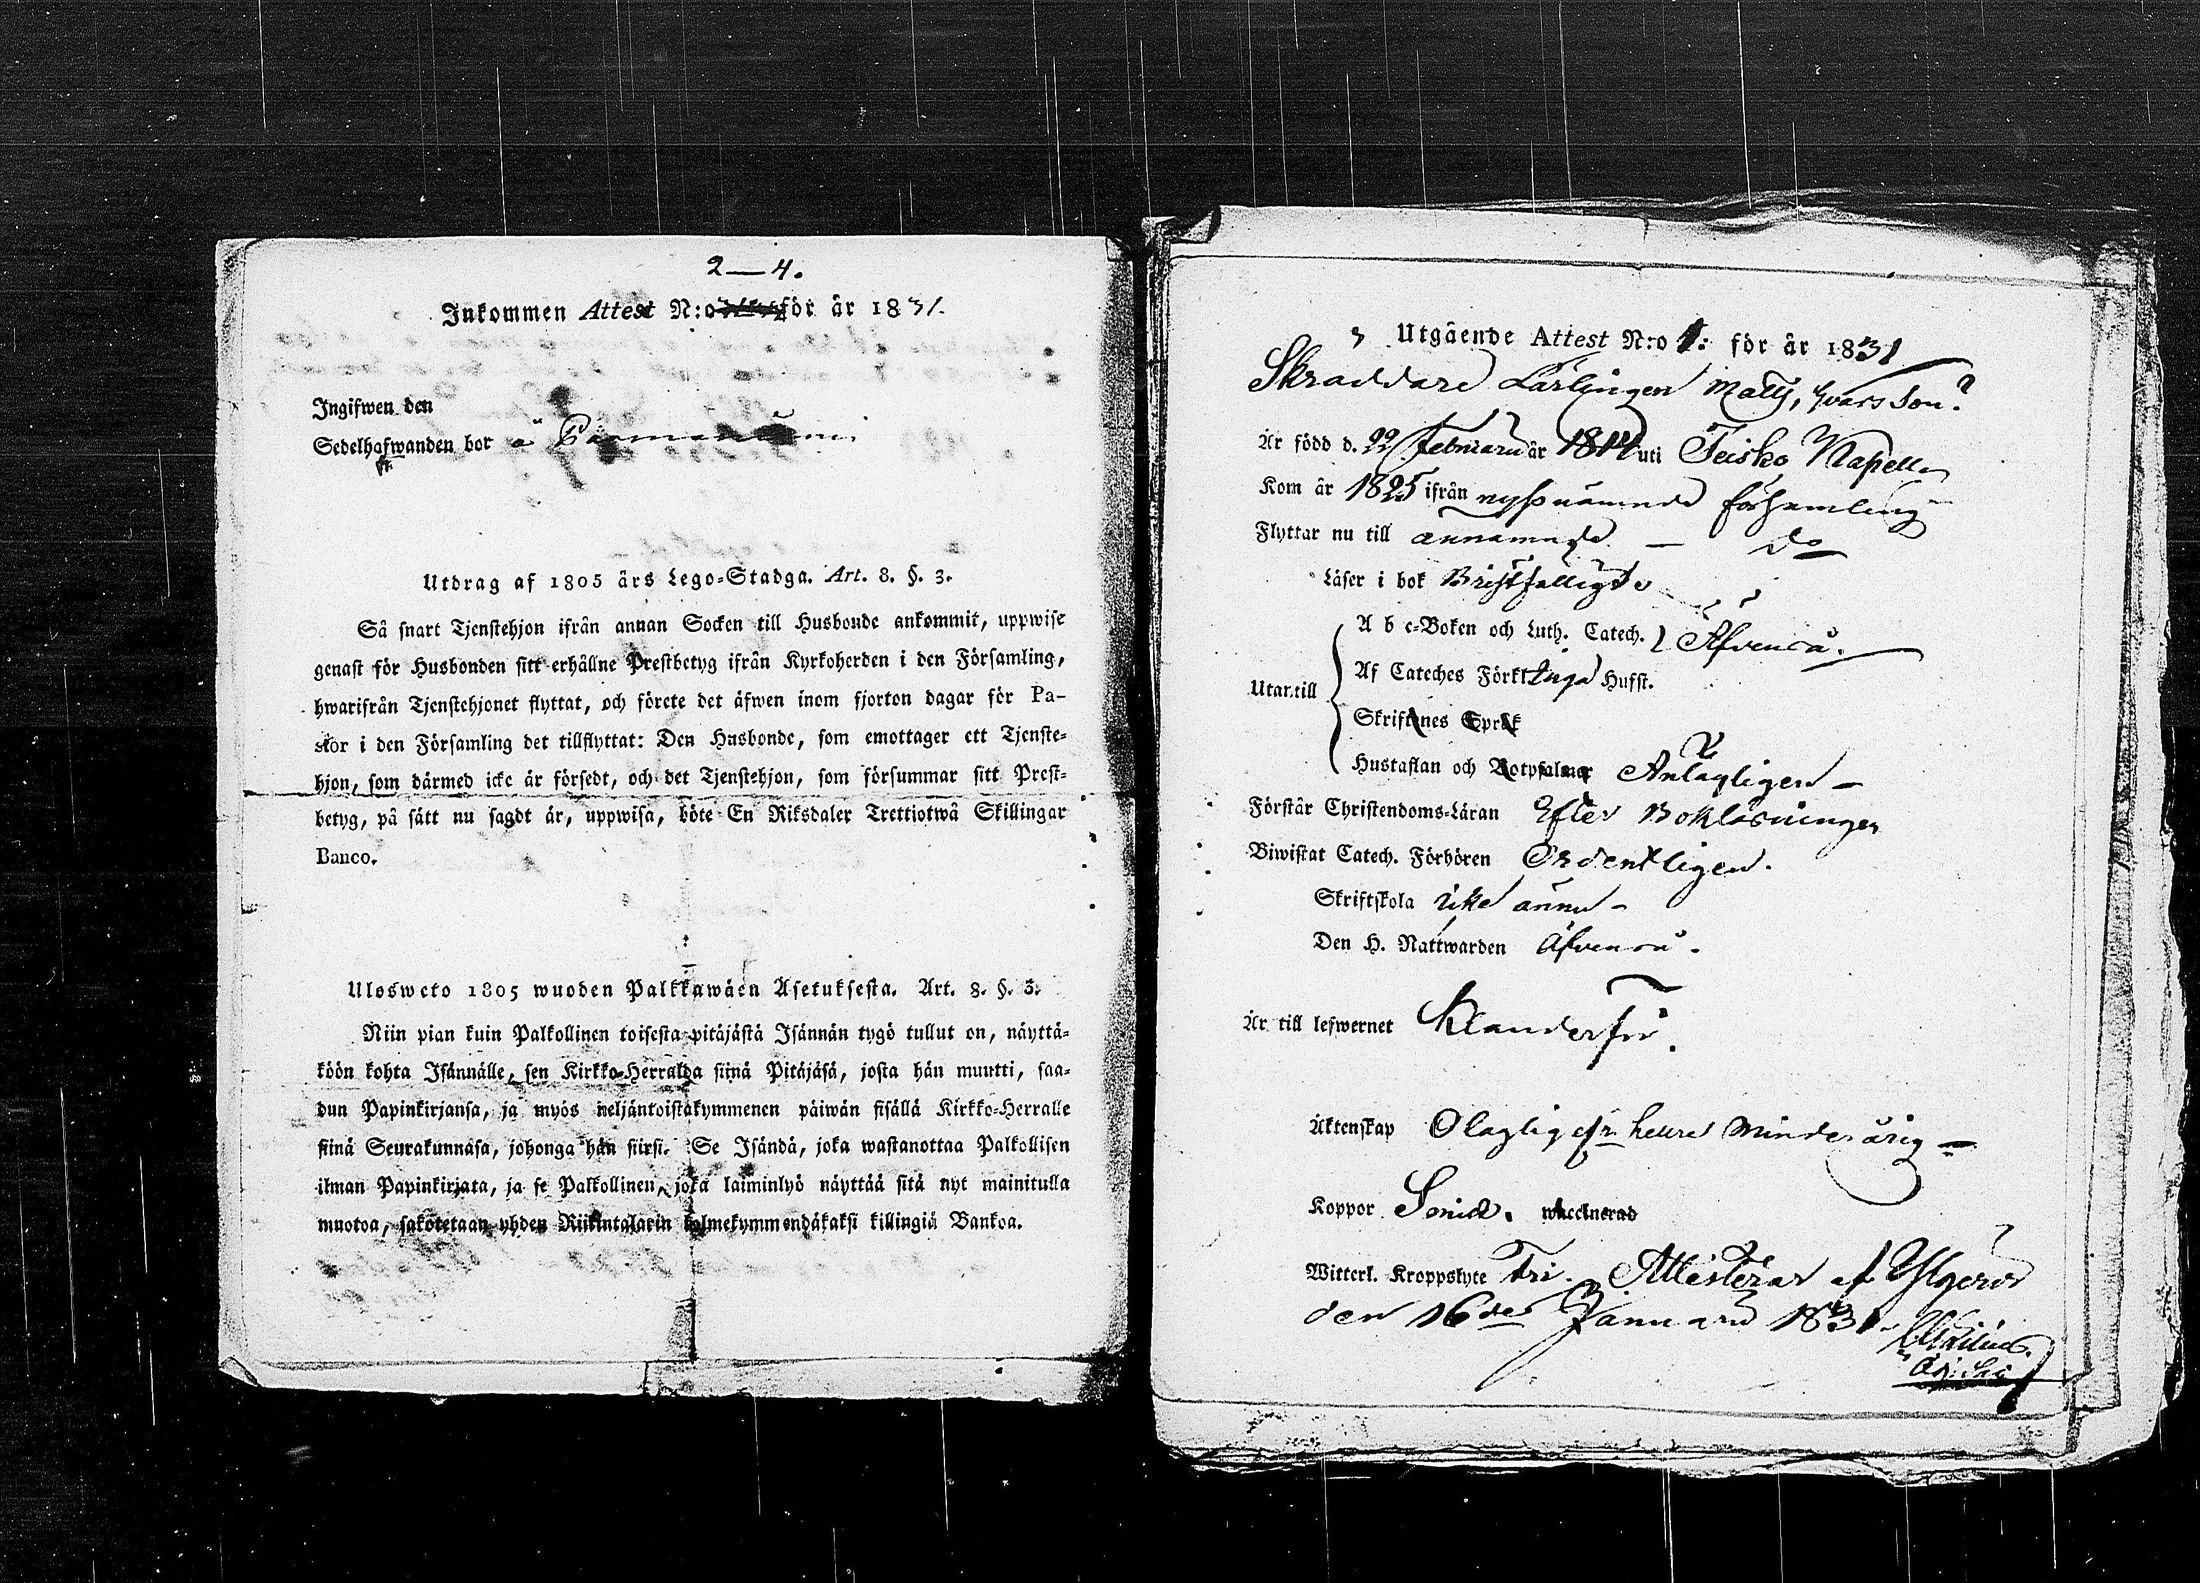 2—4.
Inkommen Attest N:o för år 1831.
Ingifwen den
Sedelhafwanden bor å
Utdrag af 1805 års Lego-Stadga. Art. 8. §. 3.
Så snart Tjenstehjon ifrån annan Socken till Husbonde ankommit, uppwise
genast för Husbonden sitt erhållne Prestbetyg ifrån Kyrkoherden i den Församling,
hwarifrån Tjenstehjonet flyttat, och förete det äfwen inom fjorton dagar för Pa-
stor i den Församling det tillflyttat: Den Husbonde, som emottager ett Tjenste-
hjon, som därmed icke är försedt, och det Tjenstehjon, som försummar sitt Prest-
betyg, på sätt nu sagdt är, uppwisa, böte En Riksdaler Trettiotwå Skillingar
Banco.
Ulosweto 1805 wuoden Palkkawäen Asetuksesta. Art. 8. §. 3.
Niin pian kuin Palkollinen toisesta pitäjästä Isännän tygö tullut on, näyttä-
köön kohta Isännälle, sen Kirkko-Herralda siinä Pitäjäsä, josta hän muutti, saa-
dun Papinkirjansa, ja myös neljäntoistakymmenen päiwän sisällä Kirkko-Herralle
siinä Seurakunnasa, johonga hän siirsi. Se Isändä, joka wastanottaa Palkollisen
ilman Papinkirjata, ja se Palkollinen, joka laiminlyö näyttää sitä nyt mainitulla
muotoa, sakotetaan yhden Riikintalarin kolmekymmendäkaksi killingiä Bankoa.
3 Utgående Attest N:o 1: för år 1831
Skräddare Lärlingen Matts, Ivarsson
Är född d. 22 Februarii år 1814 uti Teisko Kapell
Kom år 1825 ifrån nyssnämnde församling
Flyttar nu till do
Läser i bok Bristfälligt
A b c-Boken och Luth. Catech. } Äfvenså.
Utantill { Af Cateches Förkl. inga Hufst.
Skriftenes Språk
Hustaflan och Botpsalmer Antagligen –
Förstår Christendoms-Läran Efter Bokläsningen
Biwistat Catech. Förhören Ordentligen.
Skriftskola icke ännu –
Den H. Nattwarden äfvenså.
Är till lefwernet Klanderfri.
Äktenskap Olaglig efr hellre Minderårig –
Koppor waccinerad
Witterl. Kroppslyte Fri. Attesterar af Ylgerov
den 16de Januarii 1831.